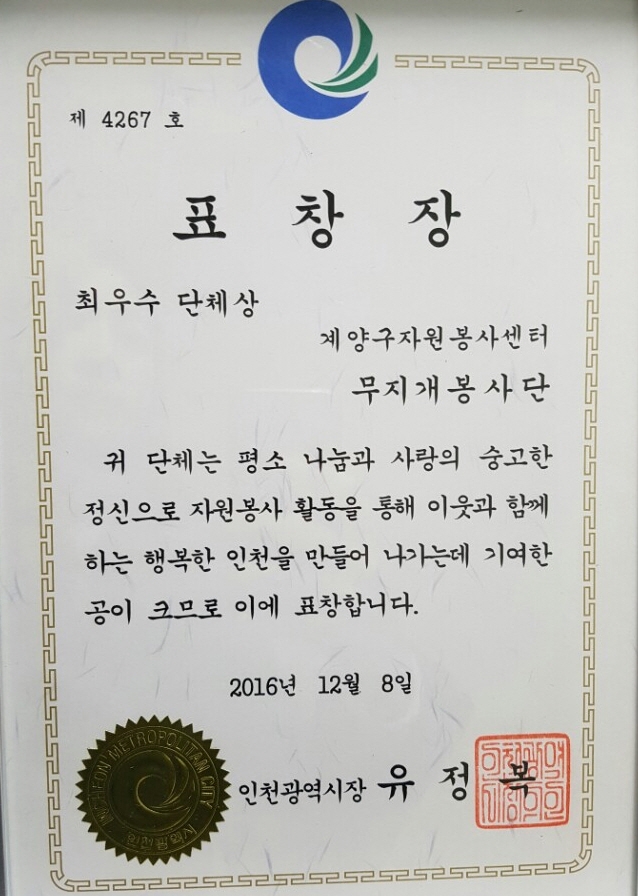 제 4267 호
표 창 장
최우수 단체상
계양구자원봉사센터
무지개봉사단
귀 단체는 평소 나눔과 사랑의 숭고한
정신으로 자원봉사 활동을 통해 이웃과 함께
하는 행복한 인천을 만들어 나가는데 기여한
공이 크므로 이에 표창합니다.
2016년 12월 8일
인천광역시장 유 정 복
INCHEON METROPOLITAN CITY